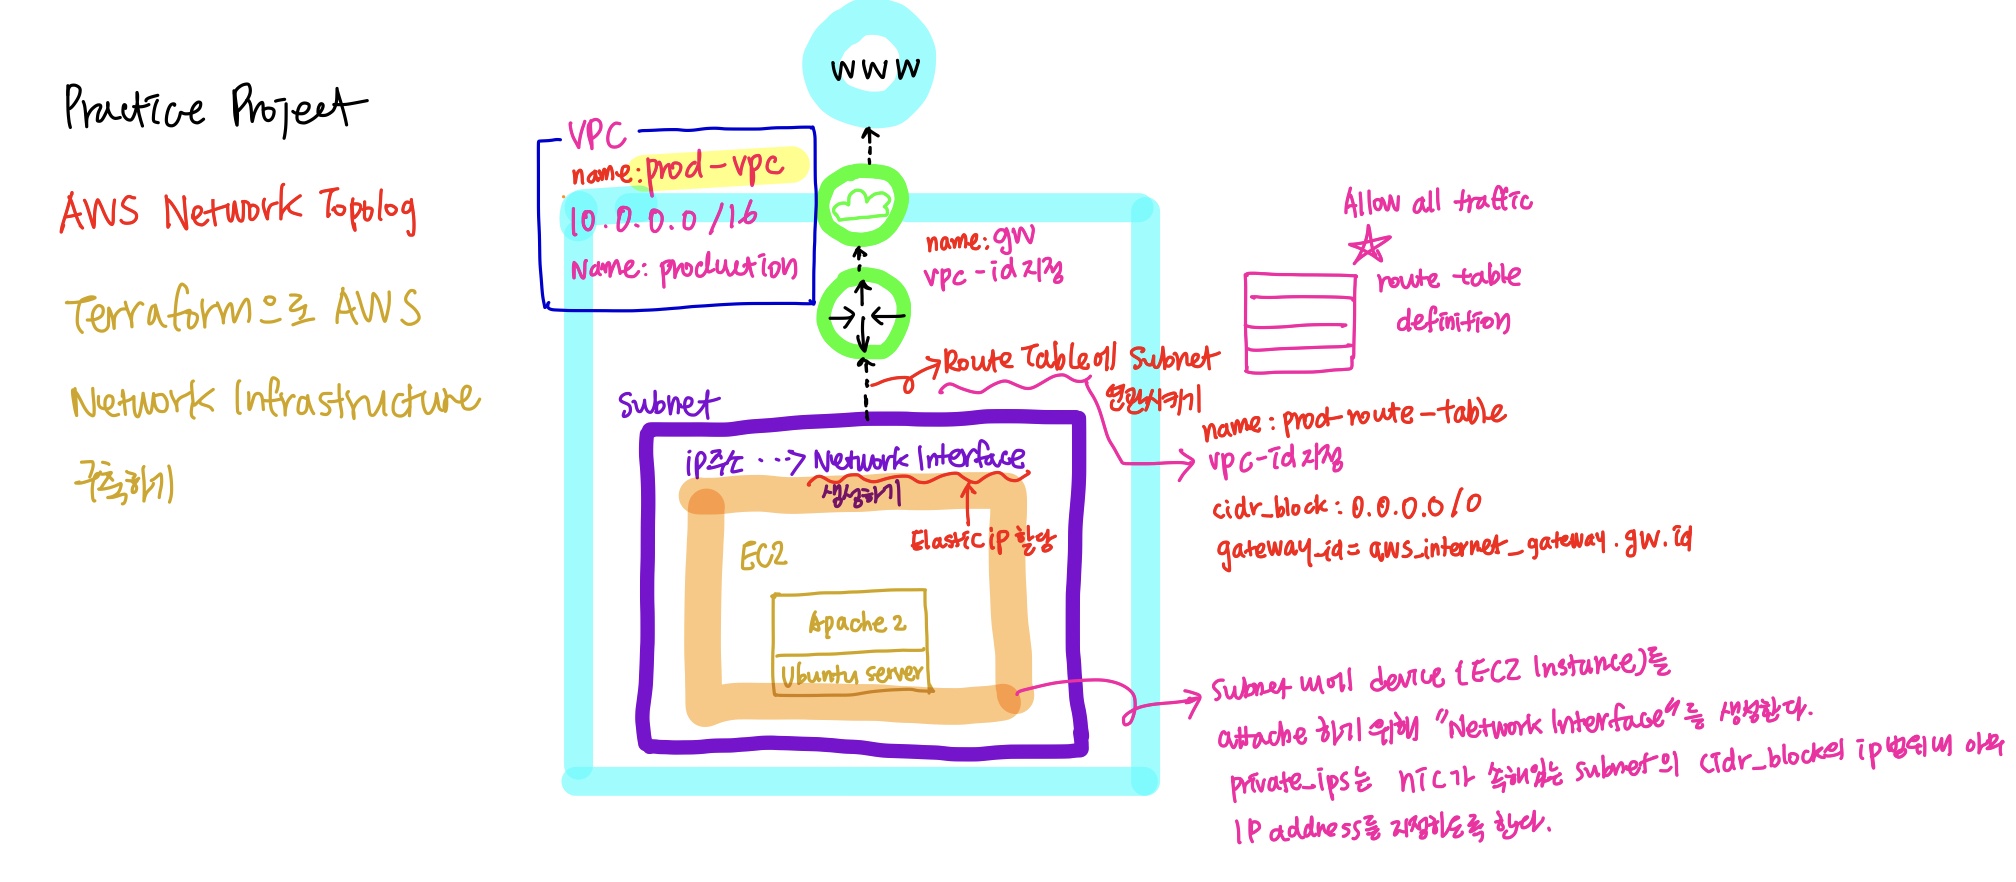 Practice Project
AWS Network Topolog
Terraform으로 AWS
Network Infrastructure
구축하기
WWW
VPC
name: prod-vpc
10.0.0.0/16
Name: production
name: gw
vpc-id 지정
Allow all traffic
route table
definition
Route Table에 Subnet
연관시키기
name: prod-route-table
vpc-id 지정
cidr_block: 0.0.0.0/0
gateway_id= aws_internet_gateway.gw.id
Subnet
ip주소 ···> Network Interface
생성하기
Elastic ip 할당
EC2
Apache 2
Ubuntu server
Subnet 내에 device (EC2 Instance)를
attache 하기 위해 "Network Interface"를 생성한다.
private_ips는 nic가 속해있는 subnet의 cidr_block의 ip범위내 아무
IP address를 지정하도록 한다.